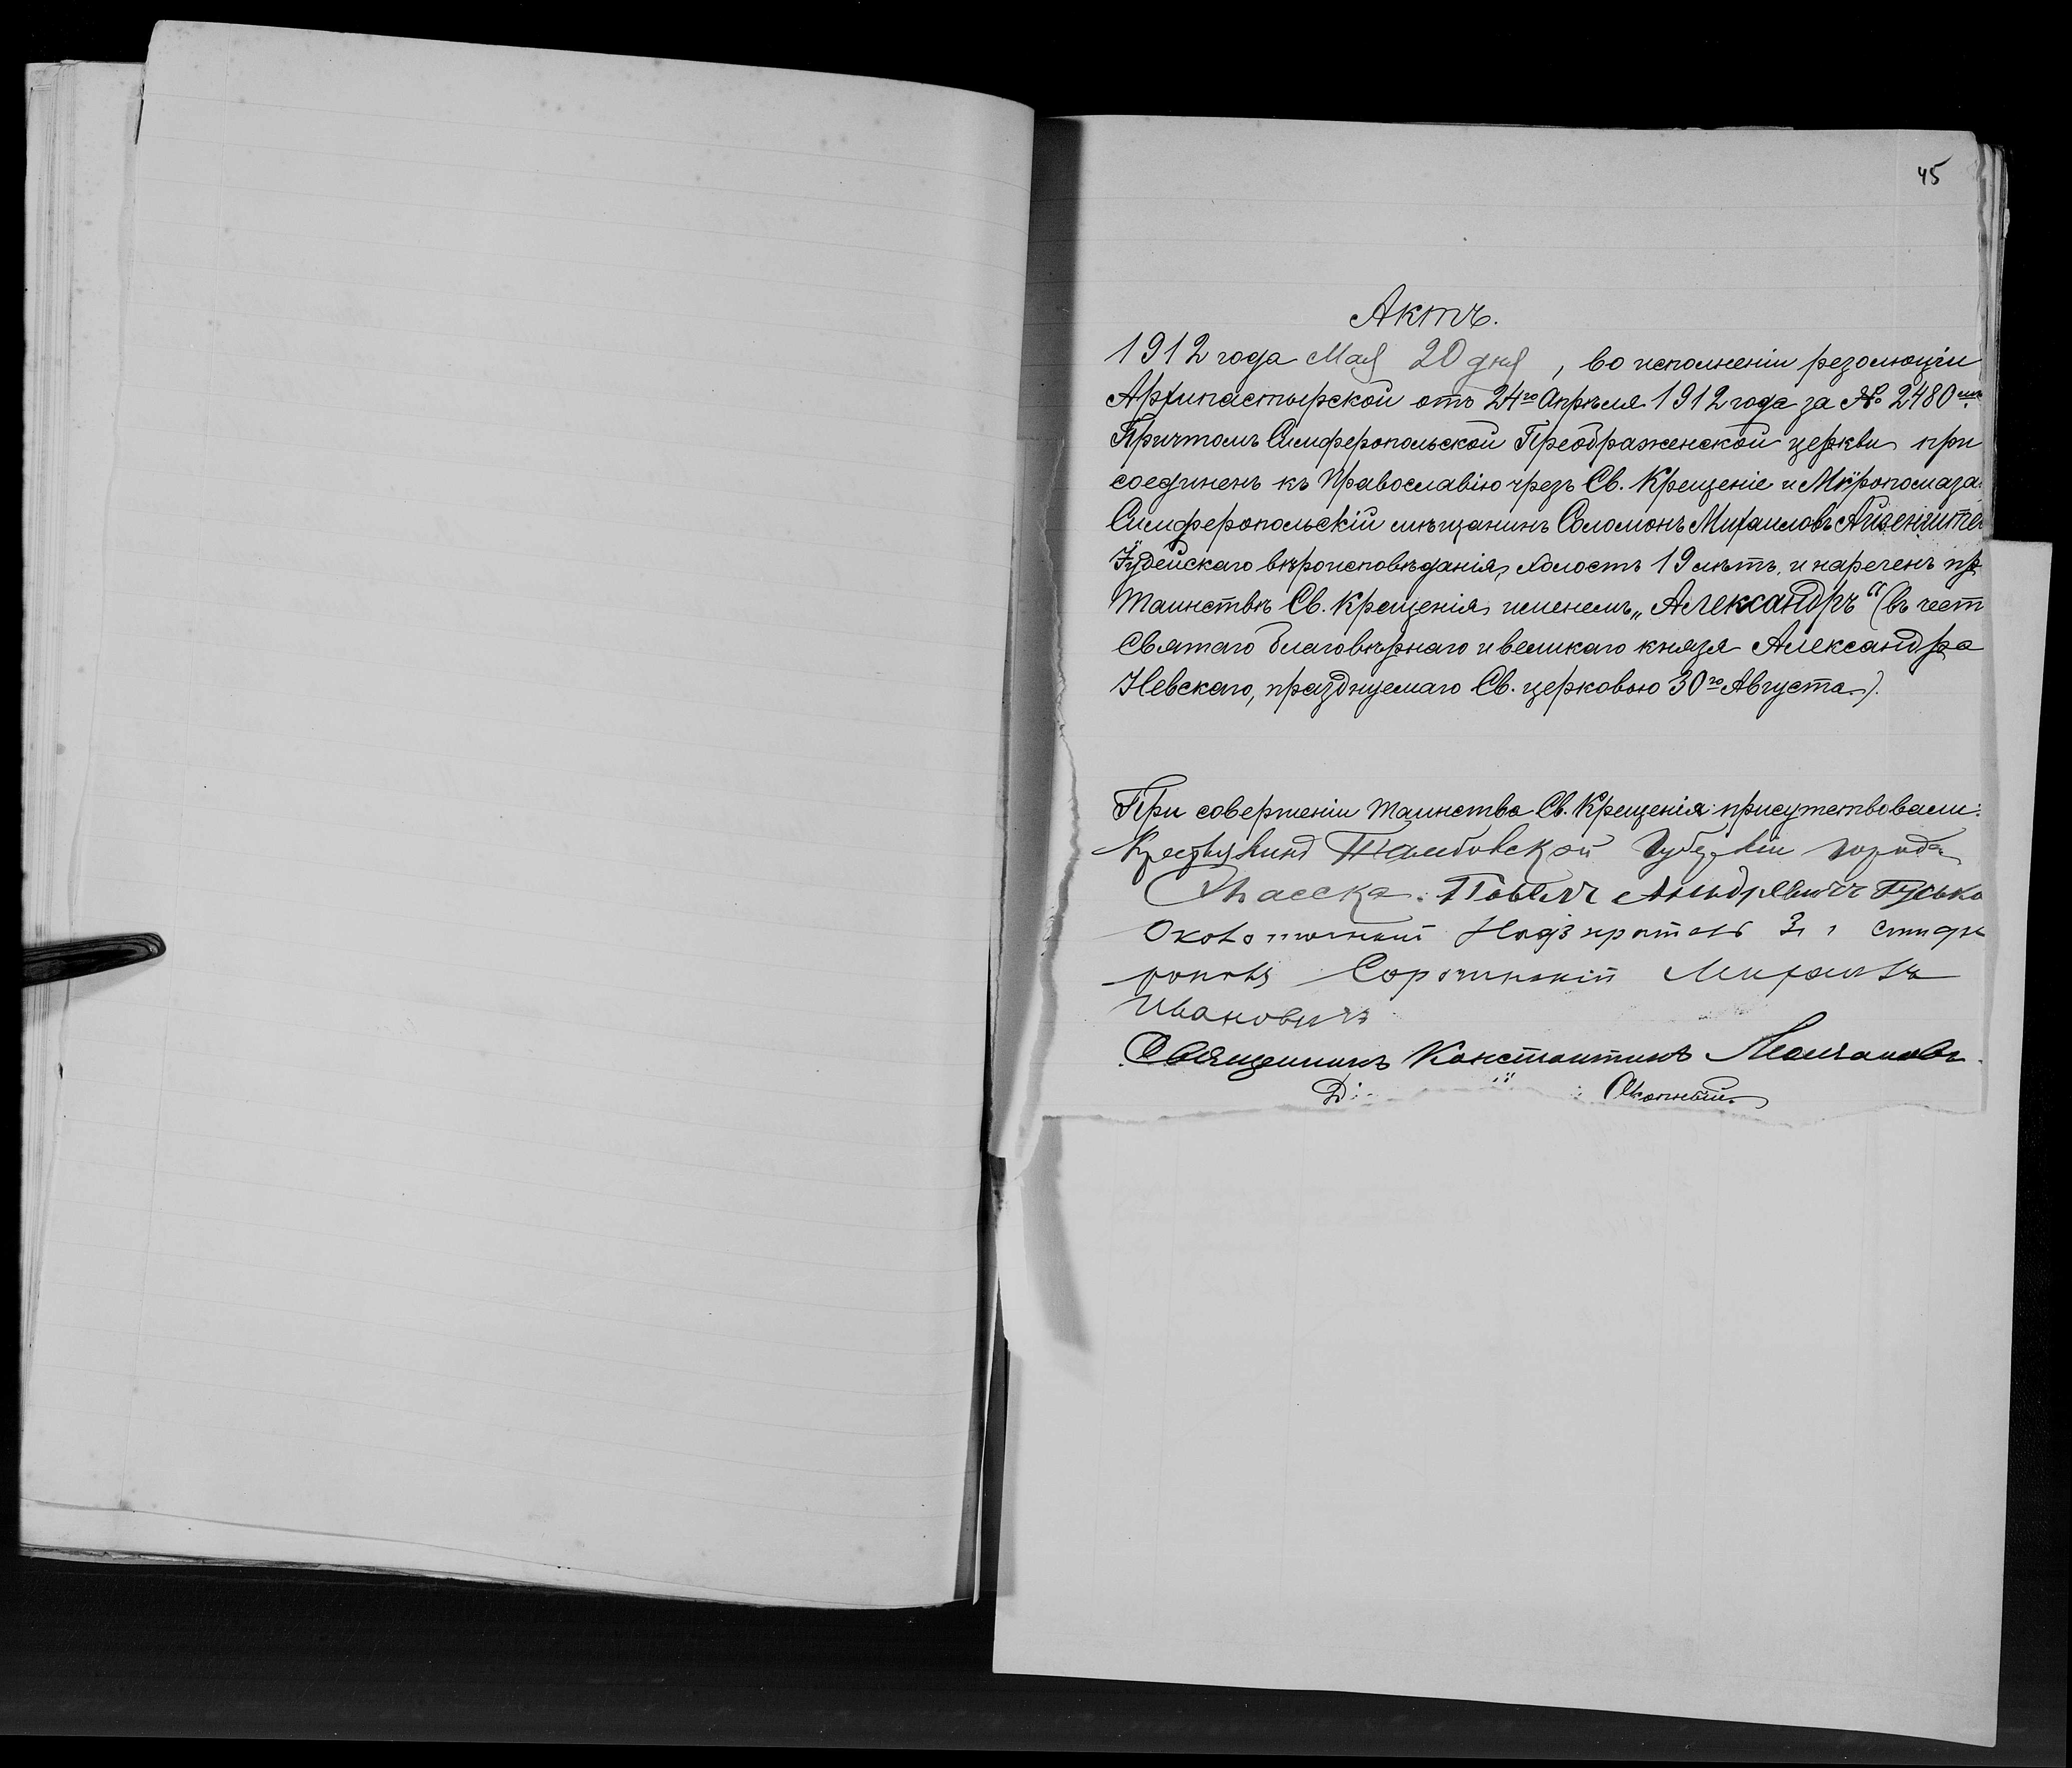 45
Актъ.
1912 года Мая 20 дня, во исполненіи резолюціи
Архипастырской отъ 24го Апрѣля 1912 года за № 2480мъ
Причтомъ Симферопольской Преображенской церкви при
соединенъ къ Православію чрезъ Св. Крещеніе и Мѵропомаза
Симферопольскій мѣщанинъ Соломонъ Михаиловъ Айзенште
Іудейскаго вѣроисповѣданія, холостъ 19 лѣтъ, и нареченъ пр
Таинствѣ Св. Крещенія именемъ „Александръ“ (въ чест
Святаго благовѣрнаго и великаго князя Александра
Невскаго, празднуемаго Св. церковью 30го Августа).
При совершеніи таинства Св. Крещенія присутствовали:
Крестьянинъ Тамбовской Губерніи города
Спасска Павелъ Андреевичъ Гусько
Околоточный Надзиратель г Симфе
рополя Сорочинскій Михаилъ
Ивановичъ
Священникъ Константинъ